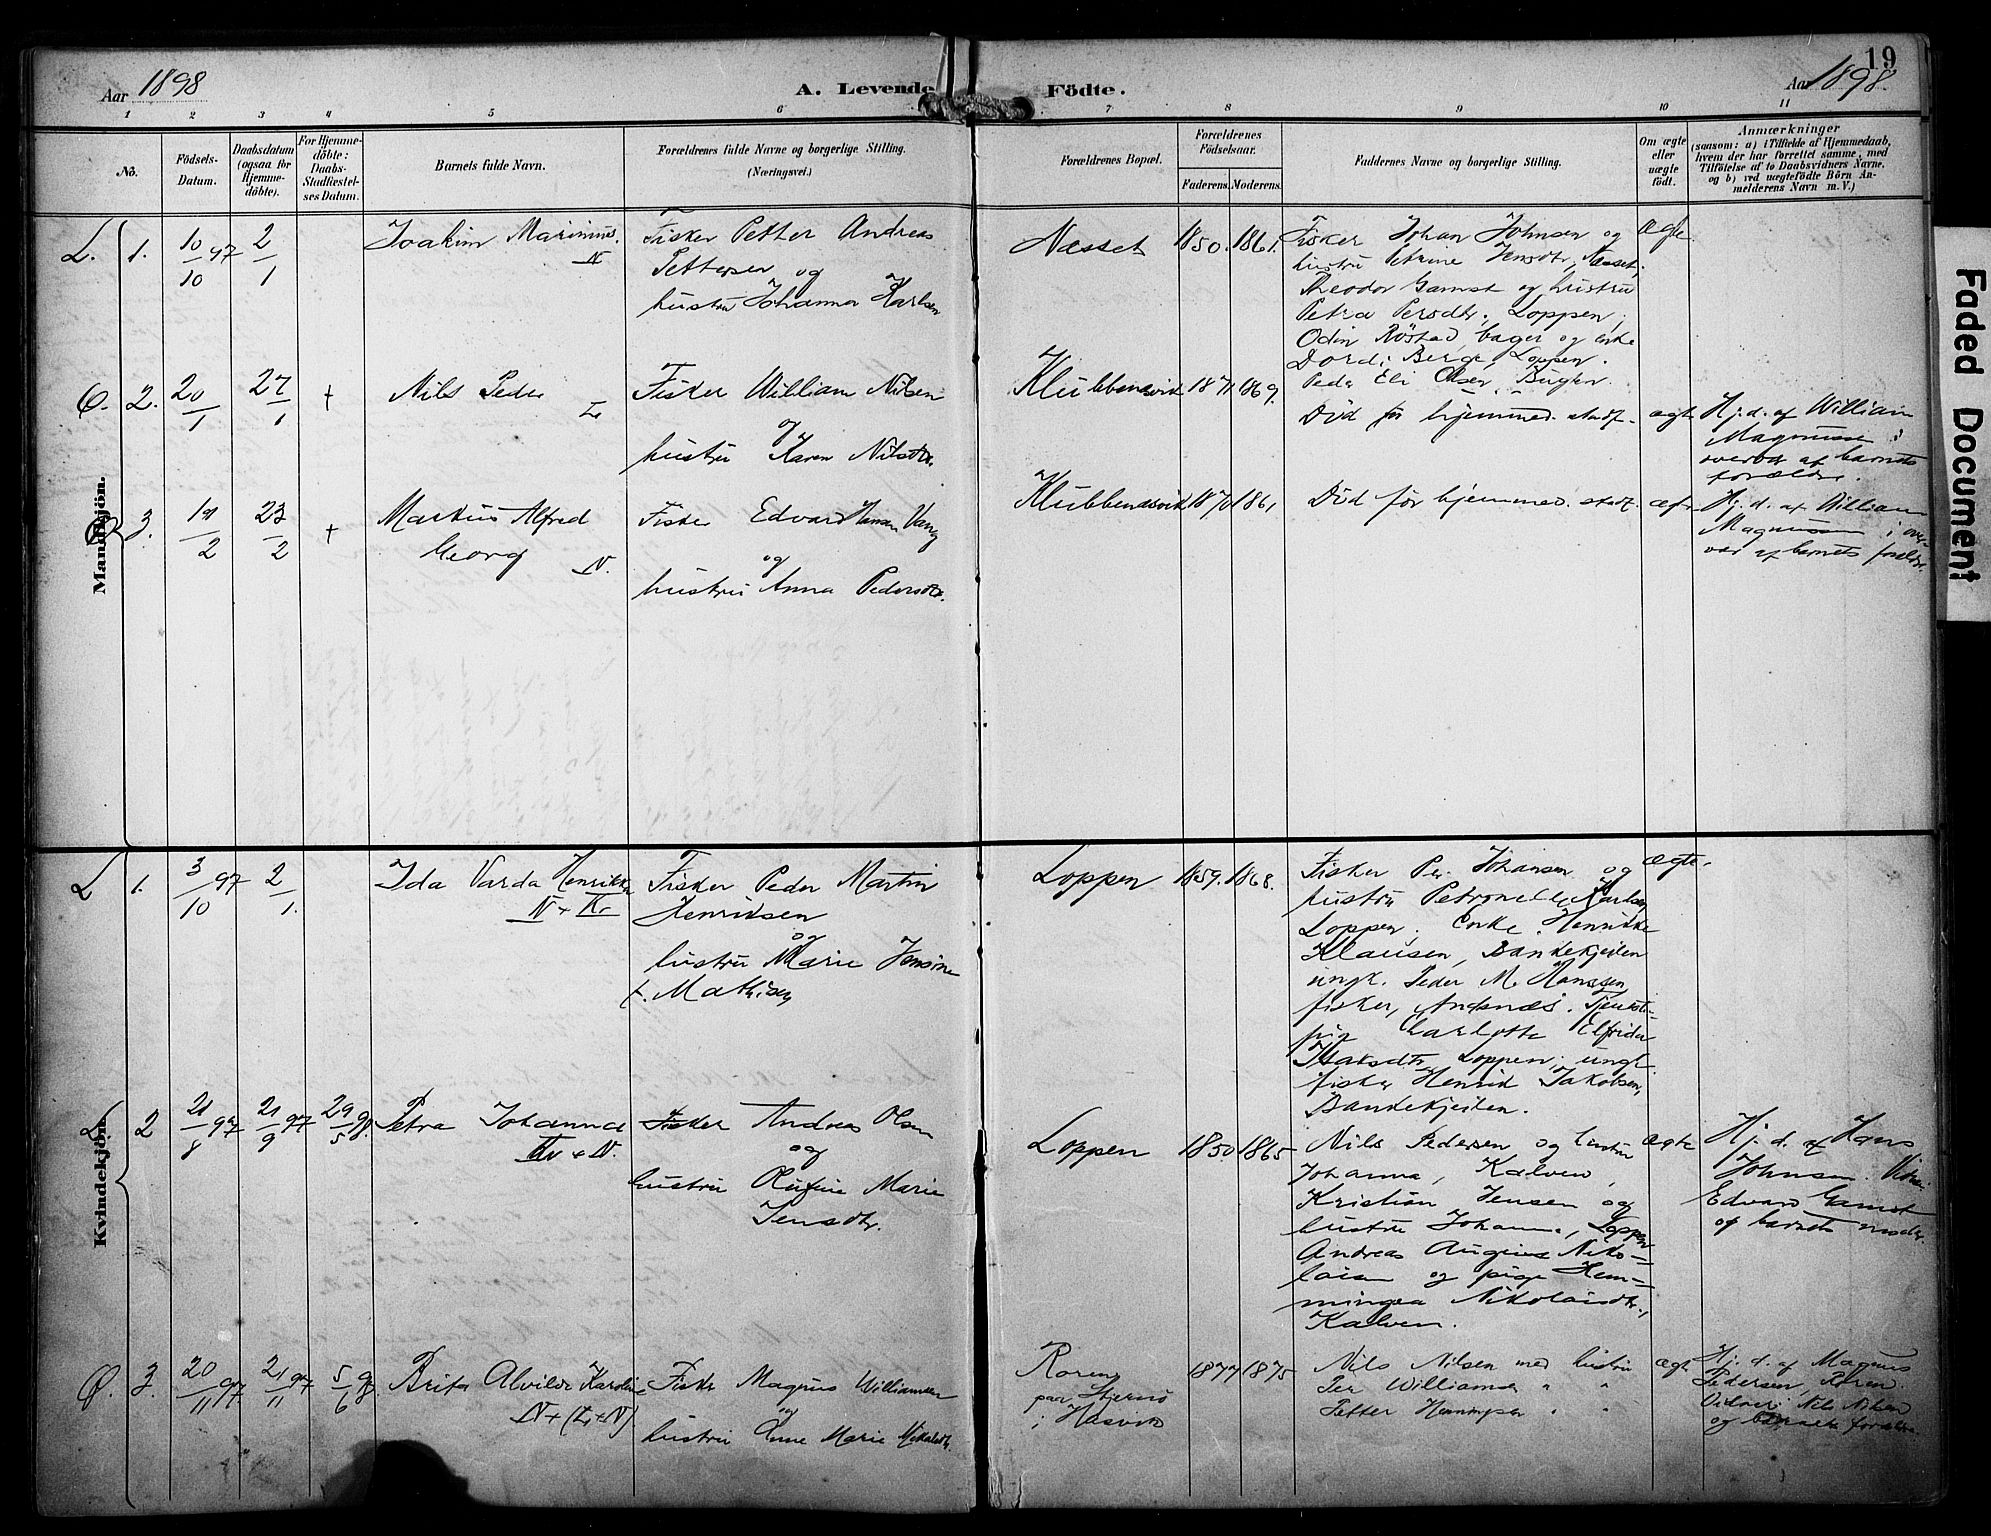 19
Aar 1898
A. Levende Födte.
Aar 1898.
1 2 3 4 5 6 7 8 9 10 11
No.
Födsels-
Datum.
Daabsdatum
(ogsaa for
Hjemme-
döbte).
For Hjemme-
döbte:
Daabs-
Stadfæstel-
ses Datum.
Barnets fulde Navn.
Forældrenes fulde Navne og borgerlige Stilling.
(Næringsvei.)
Forældrenes Bopæl.
Forældrenes
Födselsaar.
Faderens. Moderens.
Faddernes Navne og borgerlige Stilling.
Om ægte
eller
uægte
födt.
Anmærkninger
(saasom: a) i Tilfælde af Hjemmedaab,
hvem der har forrettet samme, med
Tilföielse af to Daabsvidners Navne.
og b) ved uægtefödte Börn An-
melderens Navn m. V.)
Mandkjön.
L. 1. 10/10 97 2/1
Joakim Marinius.
N
Fisker Petter Andreas
Pettersen og
hustru Johanna Karlsen
Næsset 1850. 1861.
Fisker Johan Johnsen og
hustru Petrine Jensdtr, Næsset,
Theodor Gamst og hustru
Petra Persdtr., Loppen,
Odin Röstad, bager og enke
Dordi Berge, Loppen.
Peder Eli Olsen, Bugten.
Ægte
2. 20/1 27/1 +
Nils Peder
Fisker William Nilsen
og
hustru Karen Nilsdtr.
Klubbenesvik 1871 1869.
Död för hjemmed. stadf.
ægte
Hj. d. af William
Magnussen i
overvær af barnets
forældre.
3. 19/2 23/2 +
Markus Alfred
Georg N.
Fisker Edvard Hansen Vang
og
hustru Anna Pedersdtr.
Klubbenesvik 1870 1861
Död för hjemmed. stadf.
ægte
Hj. d. af William
Magnussen i over-
vær af barnets forældre.
Kvindekjön.
L 1. 3/10 97 2/1.
Ida Varda Henrikke
N + Kv
Fisker Peder Martin
Henriksen
og
hustru Marie Jensine
f. Mathisen
Loppen 1859. 1868.
Fisker Per Johansen og
hustru Petronelle Karlsen,
Loppen. Enke Henrikke
Klausen, Bankekjeilen
ungk. Peder M. Hanssen
fisker, Andsnæs. Tjeneste-
pig Carlotte Elfrida
Isaksdtr, Loppen, ungk.
fisker Henrik Jakobsen,
Bankekjeilen.
ægte.
L. 2 21/8 97 21/9 97 29/5 98.
Petra Johanna
Kv + N.
Fisker Andreas Olsen
og
hustru Olufine Marie
Jensdtr.
Loppen 1850 1865
Nils Pedersen og hustru
Johanna, Kalven,
Kristian Jensen og
hustru Johanna, Loppen
Andreas Auginus Niko-
laisen og pige Hem-
mingea Nikolaisdtr.,
Kalven.
ægte
Hj. d. af Hans
Johnsen. Vidner:
Edvard Gamst
og barnets moder.
Ø. 3. 20/11 97. 21/11 97 5/6 98
Berit Alvilde Karoline
N + (L + N)
Fisker Magnus Williamsen
og
hustru Anne Marie Mikalsdtr.
Roren
paa Stjernö
i Hasvik
1877 1875
Nils Nilsen med hustru
Per Williamsen " "
Petter Henningsen " "
ægte
Hj. d. af Magnus
Pedersen, Roren.
Vidner: Nils Nilsen
og barnets forældre.
Faded Document